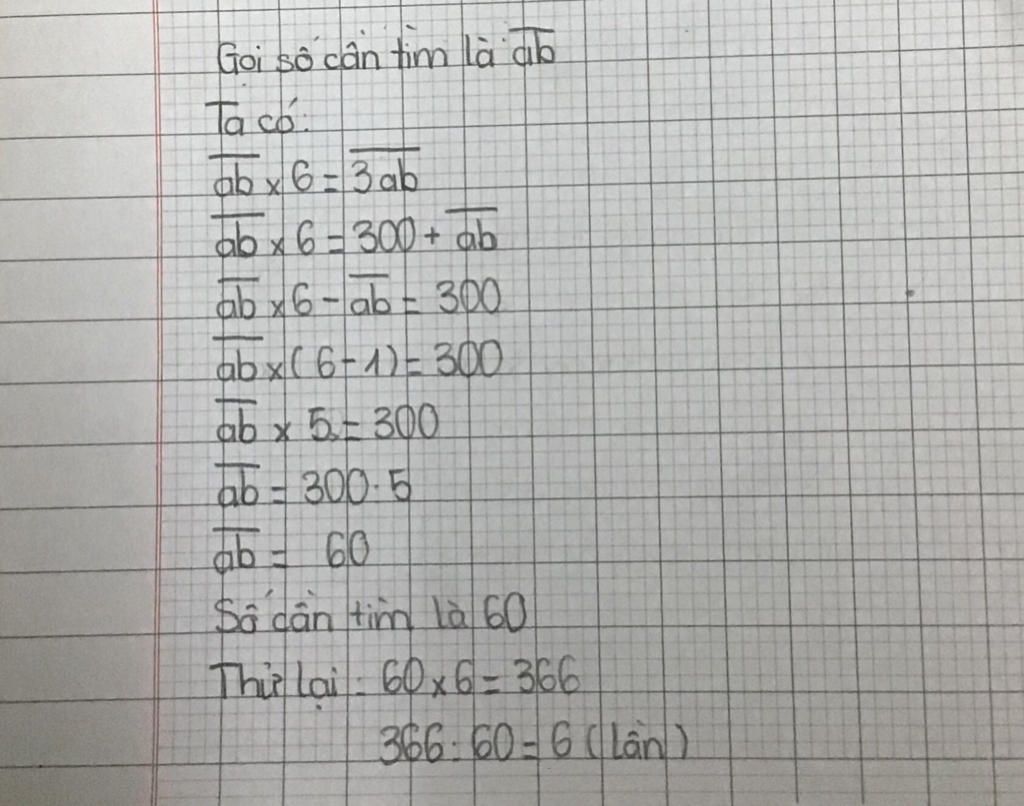 Gọi số cần tìm là ab̅
Ta có:
a̅b̅ x 6 = 3̅a̅b̅
a̅b̅ x 6 = 300 + a̅b̅
a̅b̅ x 6 - a̅b̅ = 300
a̅b̅ x ( 6 - 1 ) = 300
a̅b̅ x 5 = 300
a̅b̅ = 300 . 5
a̅b̅ = 60
Số cần tìm là 60
Thử lại : 60 x 6 = 366
366 : 60 = 6 ( lần )